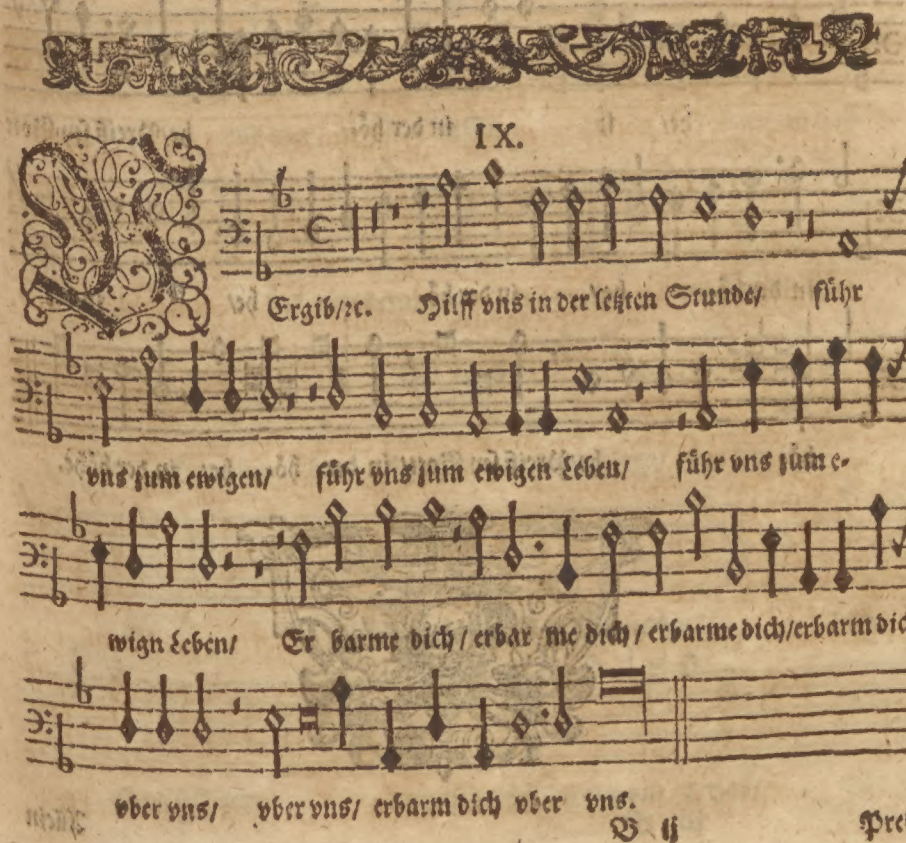 IX.
VErgib/ꝛc. Hilff vns in der letzten Stunde/ führ
vns zum ewigen/ führ vns zum ewigen Leben/ führ vns zum e-
wign Leben/ Er barme dich / erbar me dich / erbarme dich/erbarm dich
vber vns/ vber vns/ erbarm dich vber vns.
B ij